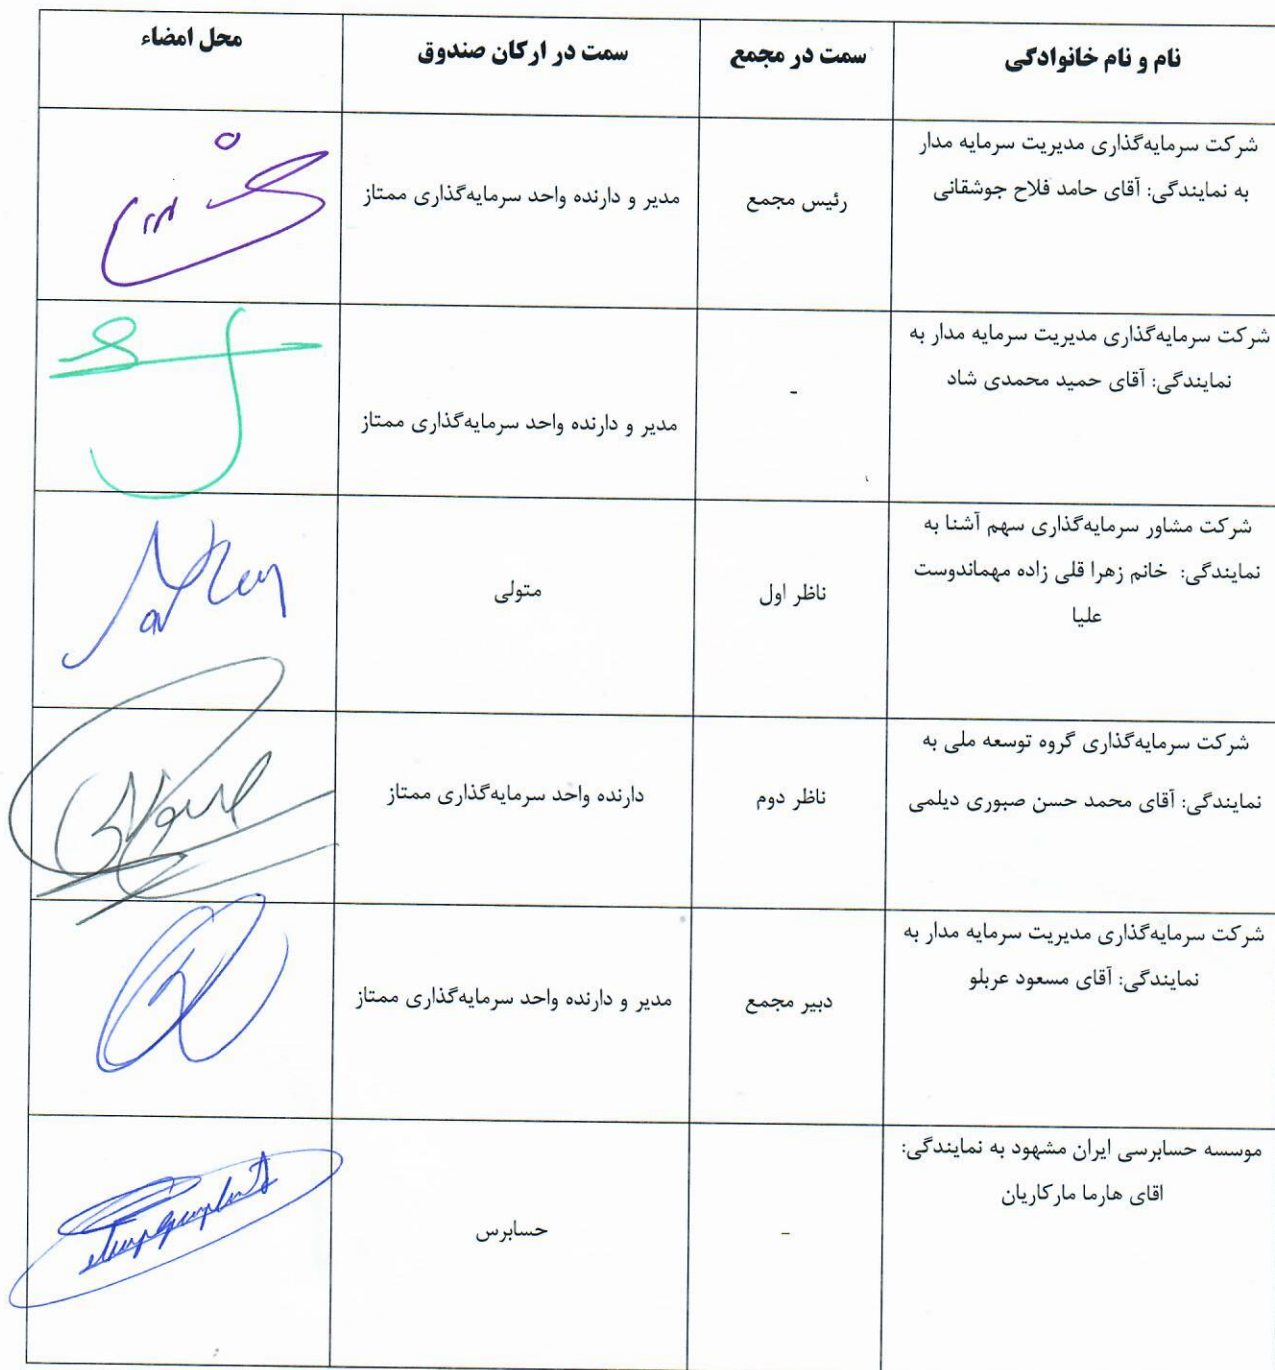 نام و نام خانوادگی
سمت در مجمع
سمت در ارکان صندوق
محل امضاء
شرکت سرمایه‌گذاری مدیریت سرمایه مدار
به نمایندگی: آقای حامد فلاح جوشقانی
رئیس مجمع
مدیر و دارنده واحد سرمایه‌گذاری ممتاز
شرکت سرمایه‌گذاری مدیریت سرمایه مدار به
نمایندگی: آقای حمید محمدی شاد
-
مدیر و دارنده واحد سرمایه‌گذاری ممتاز
شرکت مشاور سرمایه‌گذاری سهم آشنا به
نمایندگی: خانم زهرا قلی زاده مهماندوست
علیا
ناظر اول
متولی
شرکت سرمایه‌گذاری گروه توسعه ملی به
نمایندگی: آقای محمد حسن صبوری دیلمی
ناظر دوم
دارنده واحد سرمایه‌گذاری ممتاز
شرکت سرمایه‌گذاری مدیریت سرمایه مدار به
نمایندگی: آقای مسعود عربلو
دبیر مجمع
مدیر و دارنده واحد سرمایه‌گذاری ممتاز
موسسه حسابرسی ایران مشهود به نمایندگی:
اقای هارما مارکاریان
-
حسابرس